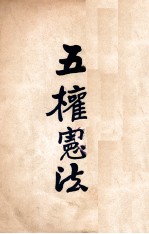 五權憲法